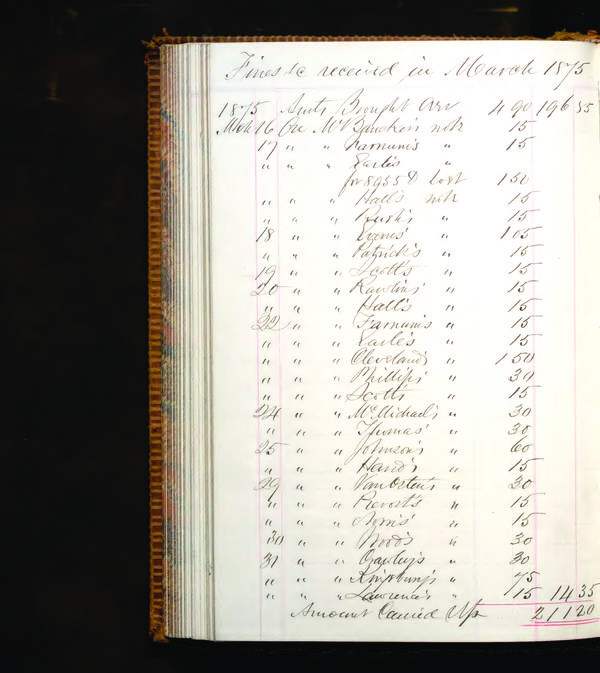 Fines &c received in March 1875
1875 Amts Brought Over 4 90 196 85
Mch 16 On McBancker's note 15
17 " " Farnum's " 15
" " " Earle's "
for 8955 D Lost 1 50
" " " Hall's note 15
" " " Rush's " 15
18 " " Evans' " 1 05
" " " Patrick's " 15
19 " " Scott's " 15
20 " " Rawlins' " 15
" " " Hall's " 15
22 " " Farnum's " 15
" " " Earle's " 15
" " " Cleveland's " 1 50
" " " Phillips' " 30
" " " Scott's " 15
24 " " McMichael's " 30
" " " Thomas' " 30
25 " " Johnson's " 60
" " " Hand's " 15
29 " " Van Osten's " 30
" " " Prevost's " 15
" " " Norris' " 15
30 " " Wood's " 30
31 " " " 30
" " " Kingsbury's " 75
" " " Lawrence's " 15 14 35
Amount Carried Up 211 20